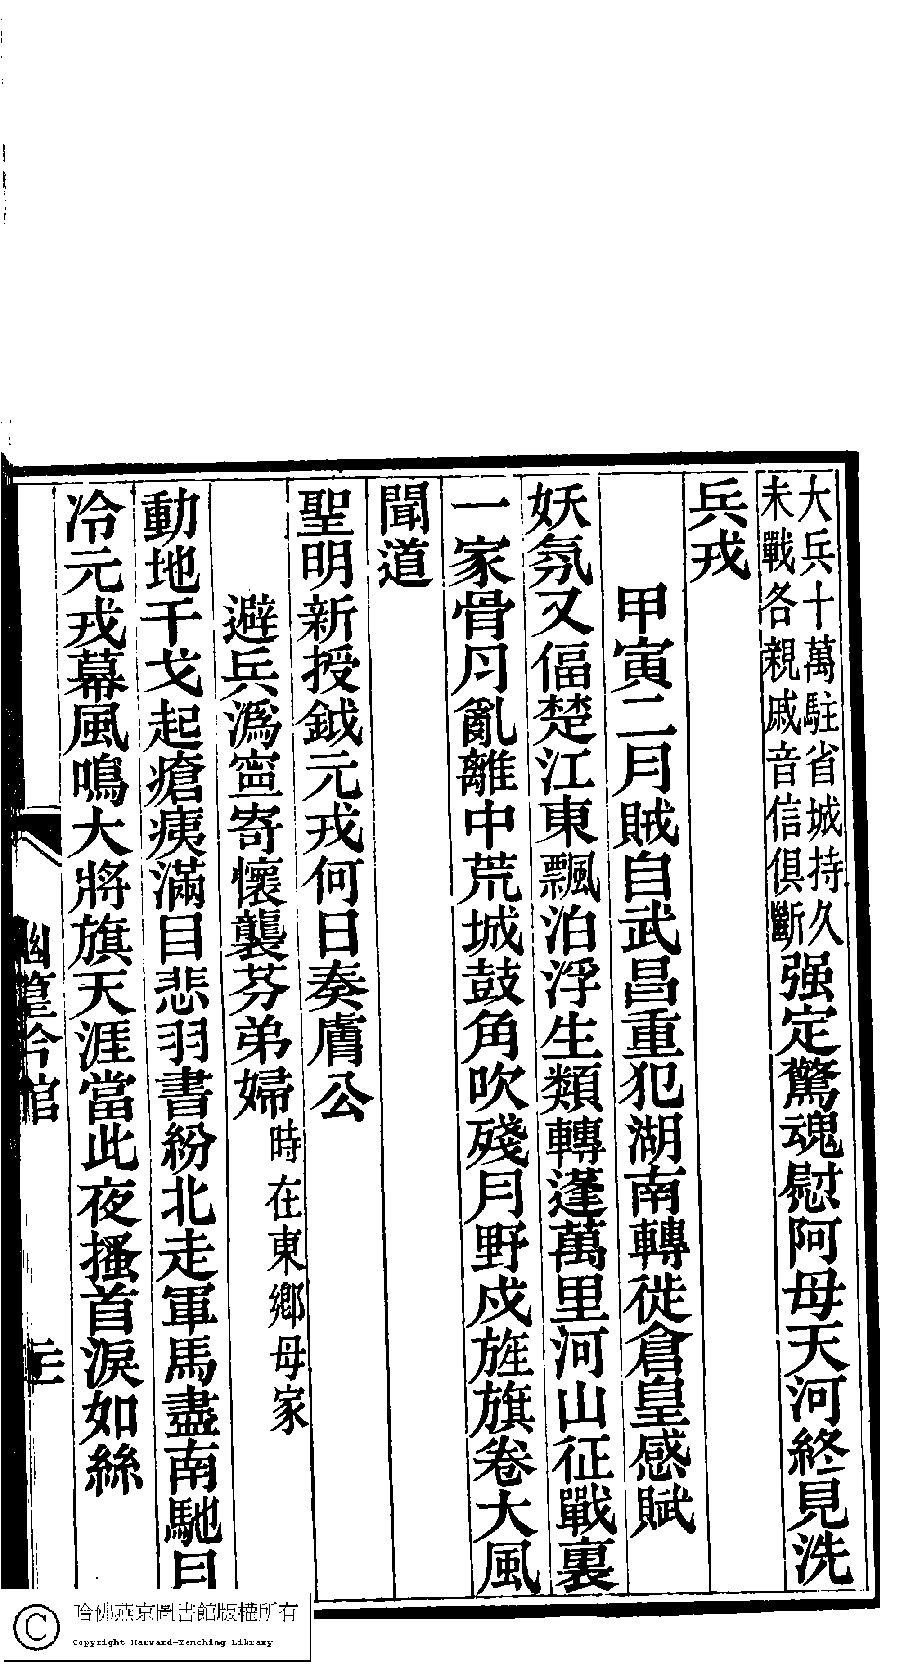 大兵十萬駐省城持久
未戰各親戚音信俱斷
强定驚魂慰阿母天河終見洗
兵戎
甲寅二月賊自武昌重犯湖南轉徙倉皇感賦
妖氛又偪楚江東飄泊浮生類轉蓬萬里河山征戰裏
一家骨月亂離中荒城鼓角吹殘月野戍旌旗卷大風
聞道
聖明新授鉞元戎何日奏膚公
避兵溈寗寄懷襲芬弟婦
時在東鄉母家
動地干戈起瘡痍滿目悲羽書紛北走軍馬盡南馳日
冷元戎幕風鳴大將旗天涯當此夜搔首淚如絲
吟館
哈佛燕京圖書館版權所有
Copyright Harvard-Yenching Library